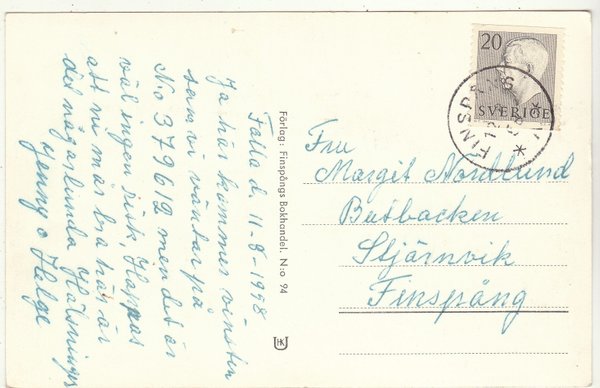 Falla d. 11-8-1958
Ja här kommer vinsten
som vi väntar på
No 379612 men det är
väl ingen risk, Hoppas
att ni mår bra här är
det någorlunda Hälsningar
Jenny o Helge
Förlag: Finspångs Bokhandel. N:o 94
HK
20
SVERIGE
FINSPÅNG
Fru
Margit Nordlund
Butbacken
Stjärnvik
Finspång